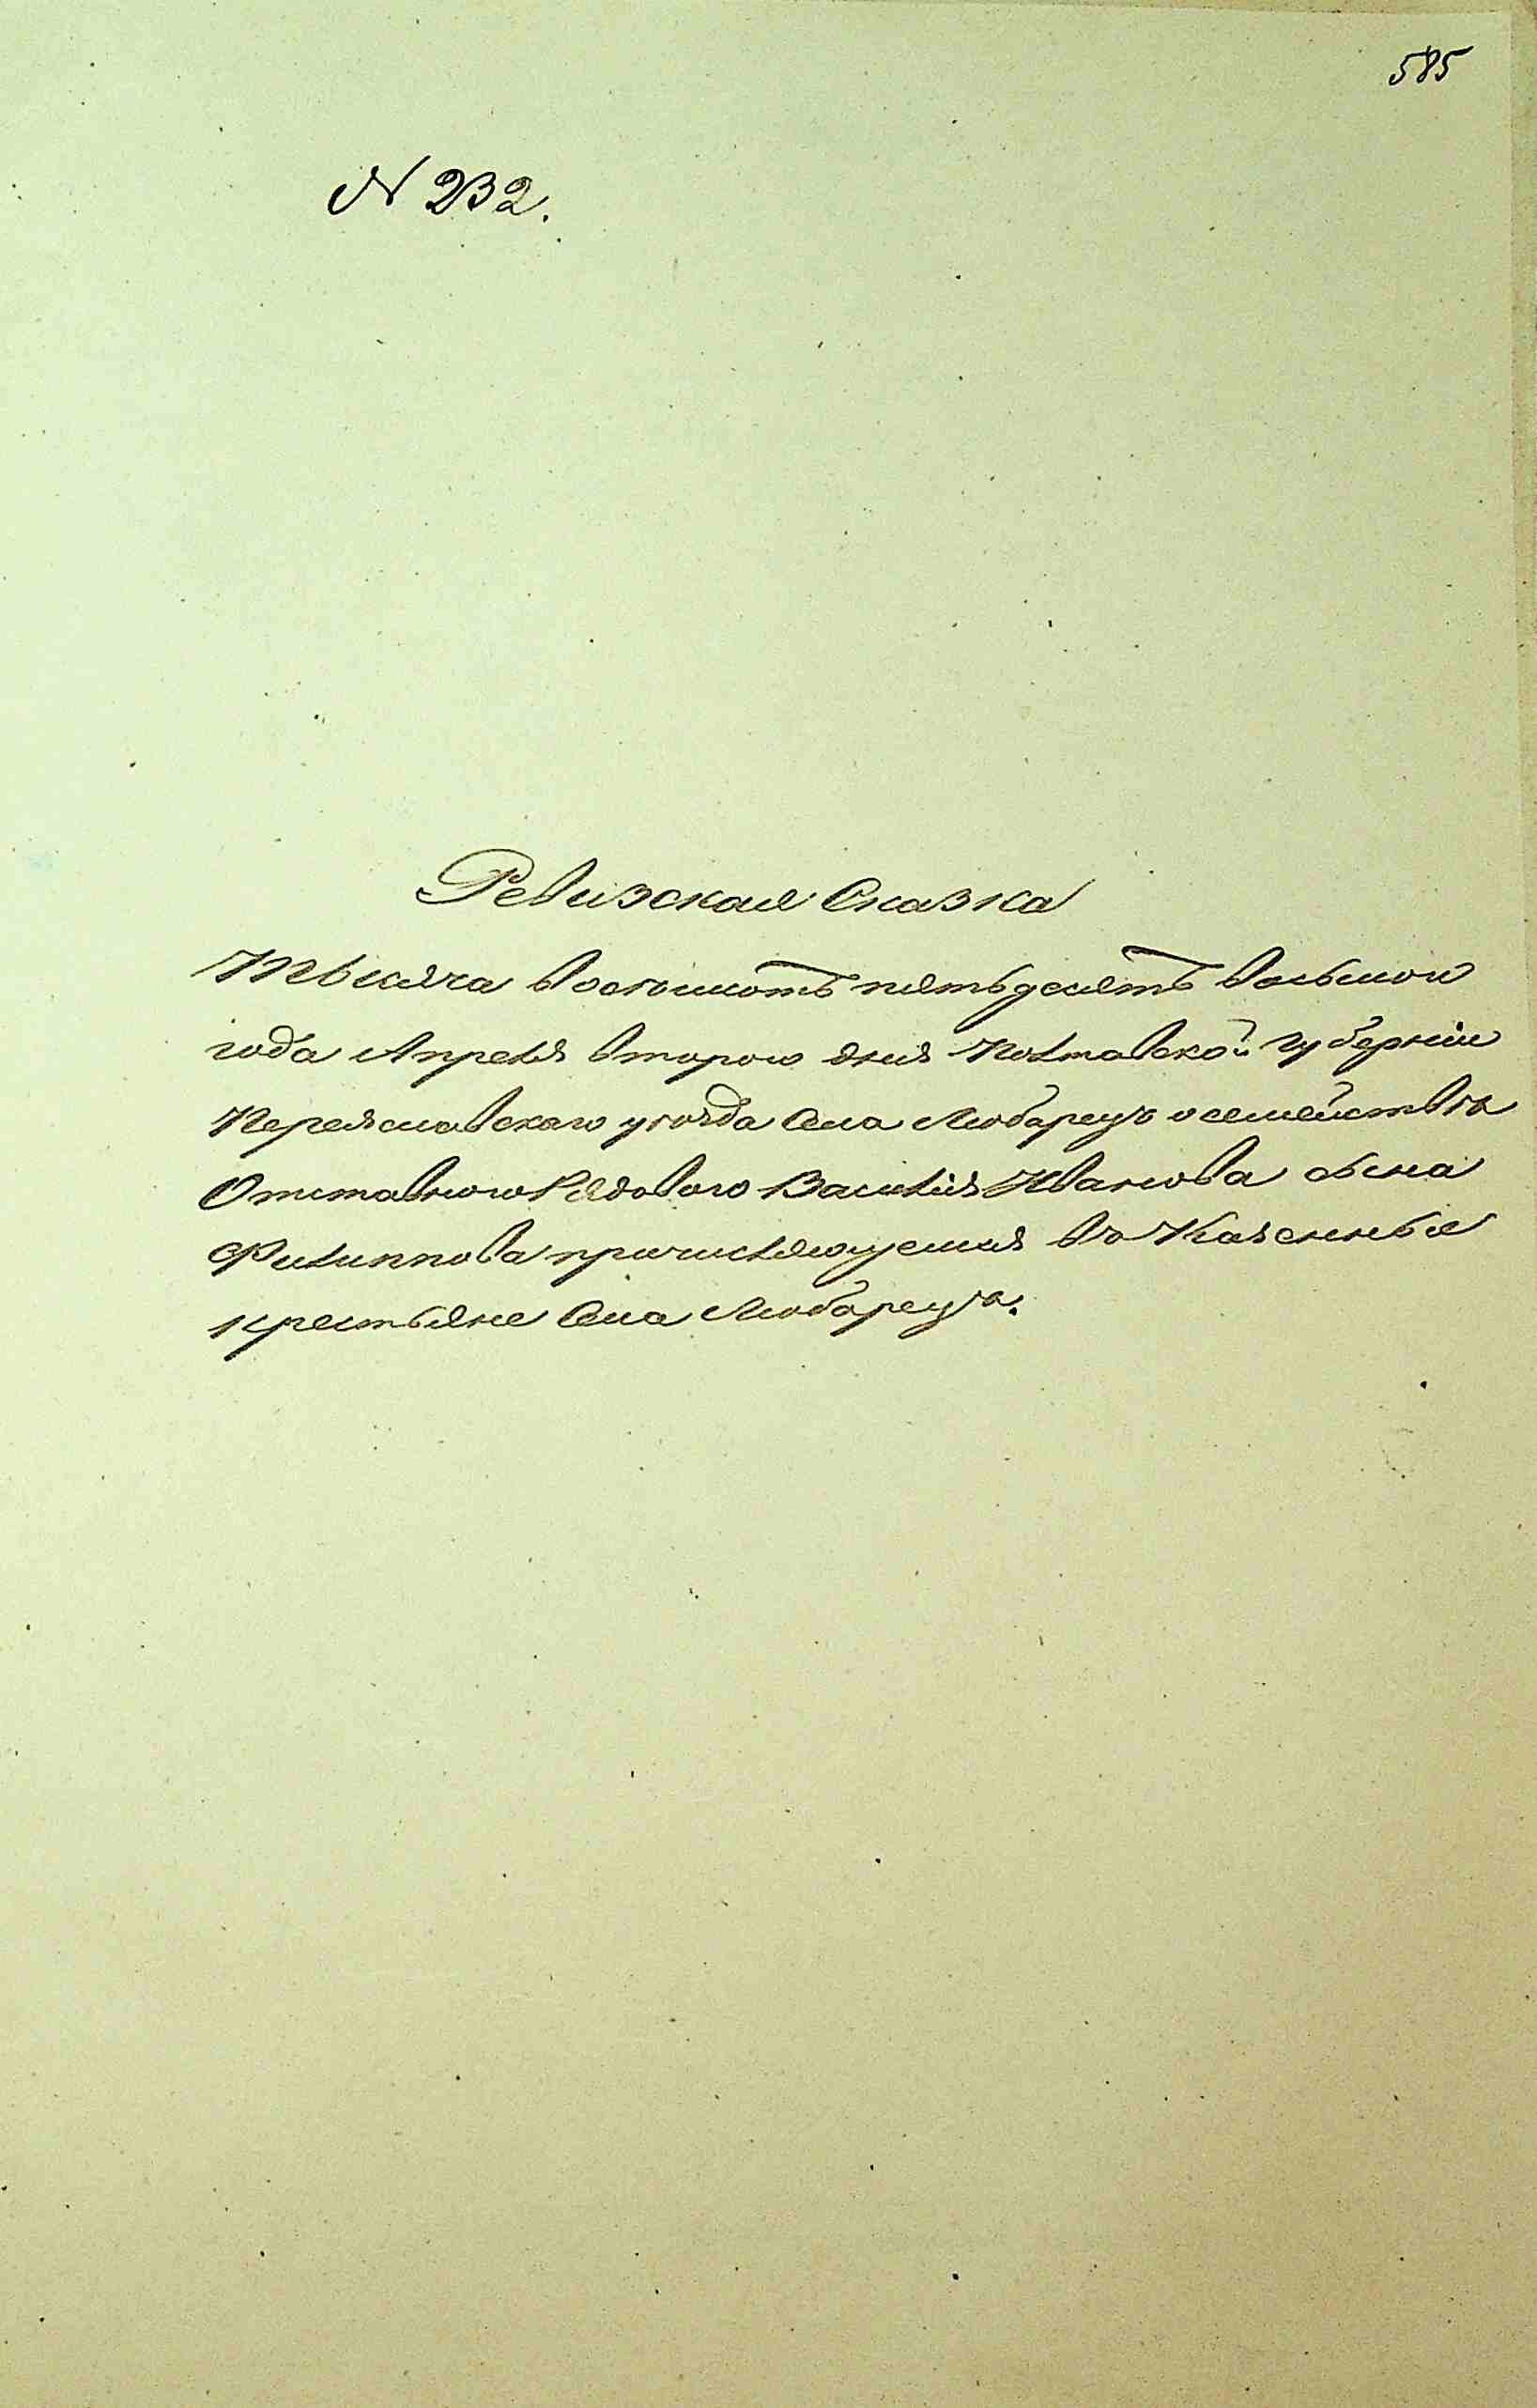 585
N 232.
Ревизская Сказка
Тысяча восемьсотъ пятьдесятъ восьмои
года Апреля второго дня Полтавской Губерніи
Переяславскаго уѣзда Села Любарецъ о семействѣ
Отставного Рядового Василія Иванова сына
Филиппова причисляющемся въ Казенные
крестьяне Села Любарецъ.